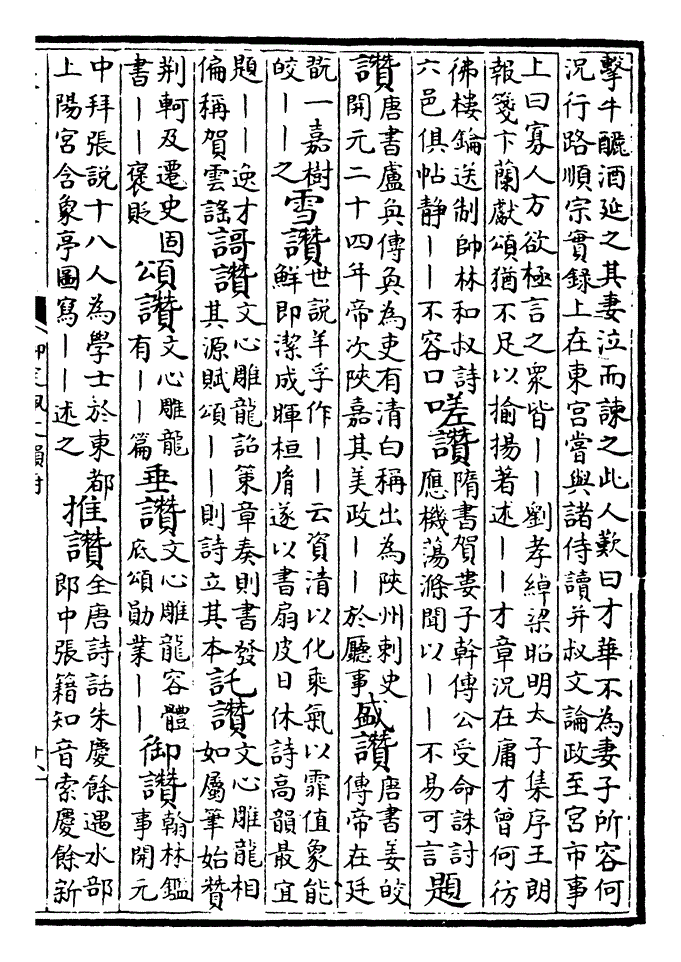 擊牛釃酒延之其妻泣而諫之此人歎曰才華不為妻子所容何
況行路順宗實錄上在東宮嘗與諸侍讀并叔文論政至宮市事
上曰寡人方欲極言之眾皆——劉孝綽梁昭明太子集序王朗
報箋卞蘭獻頌猶不足以揄揚著述——才章況在庸才曾何彷
佛樓鑰送制帥林和叔詩
六邑俱帖静——不容口
嗟讚
隋書賀婁子幹傳公受命誅討
應機蕩滌聞以——不易可言
題
讚
唐書盧奐傳奐為吏有清白稱出為陜州刺史
開元二十四年帝次陜嘉其美政——於廳事
盛讚
唐書姜皎
傳帝在廷
翫一嘉樹
皎——之
雪讚
世說羊孚作——云資清以化乘氣以霏值象能
鮮即潔成暉桓胤遂以書扇皮日休詩高韻最宜
題——逸才
偏稱賀雲謠
謌讚
文心雕龍詔策章奏則書發
其源賦頌——則詩立其本
託讚
文心雕龍相
如屬筆始贊
荆軻及遷史固
書——褒貶
頌讚
文心雕龍
有——篇
垂讚
文心雕龍容體
底頌勛業——
御讚
翰林鑑
事開元
中拜張説十八人為學士於東都
上陽宮含象亭圖寫——述之
推讚
全唐詩話朱慶餘遇水部
郎中張籍知音索慶餘新